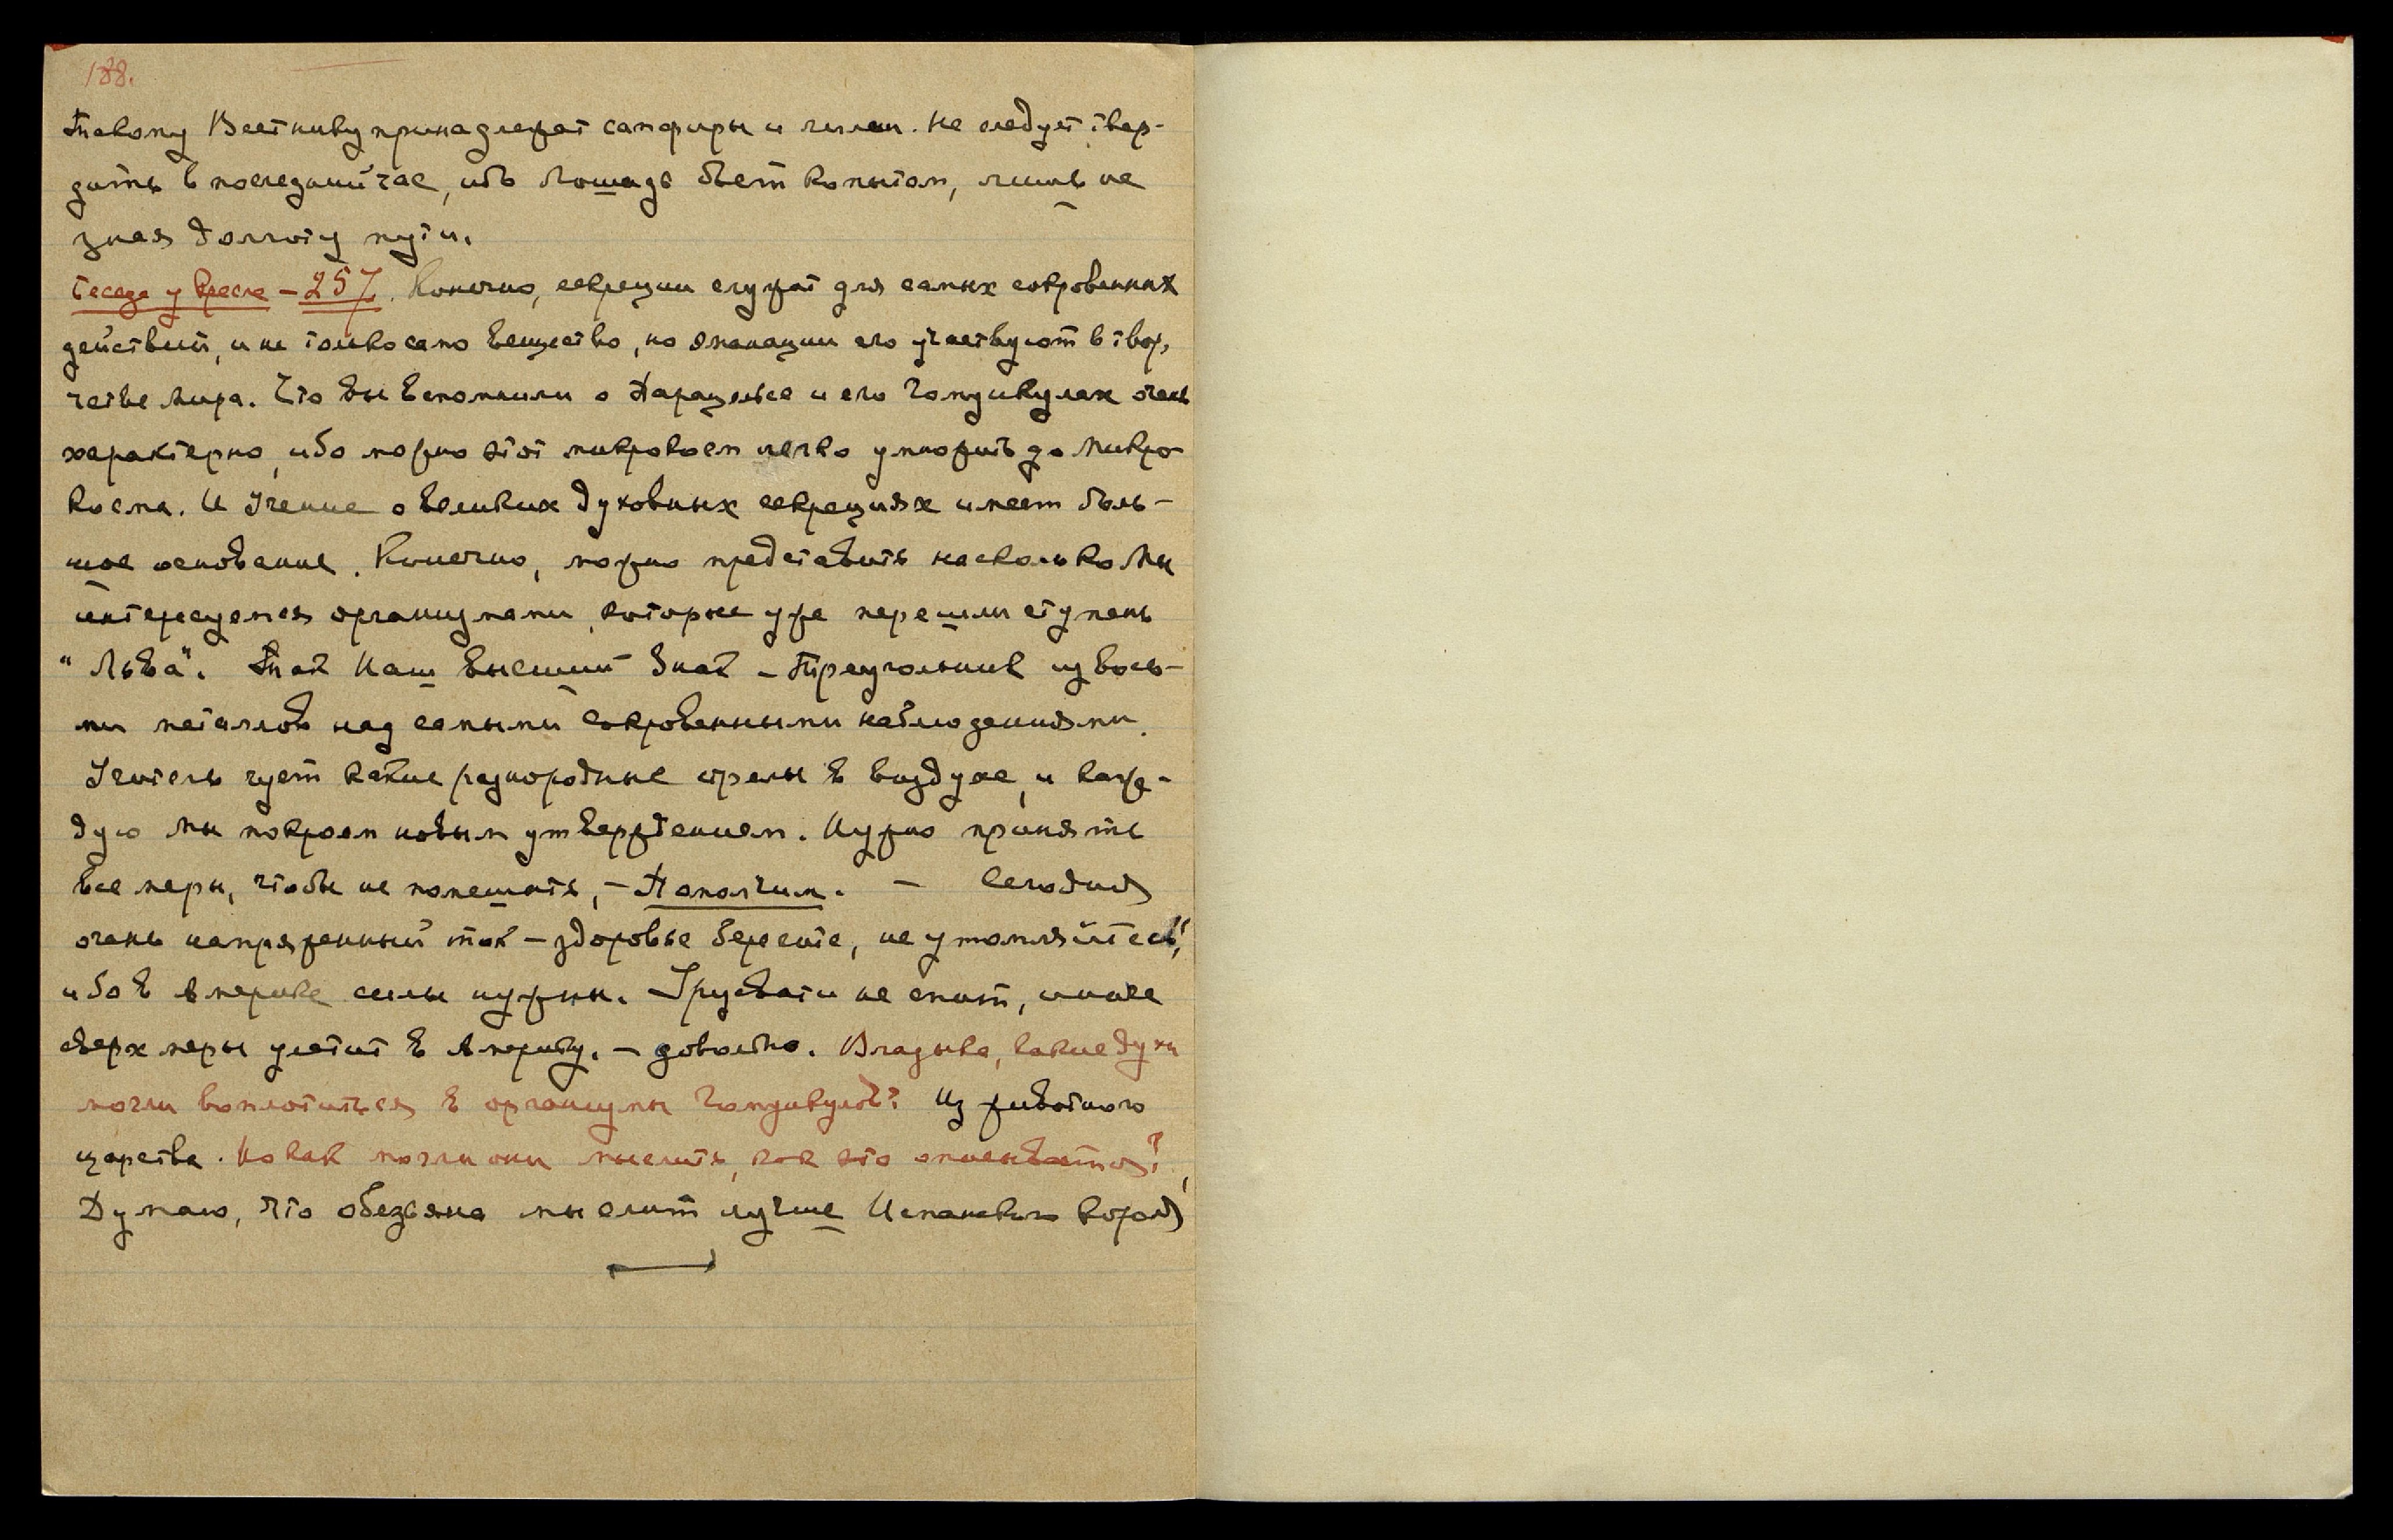 188.
Такому Вестнику принадлежат сапфиры и гимн. Не следует твер-
дить в последний час, ибо Лошадь бьет копытом, лишь не
зная долготу пути.
Беседа у Кресла – 257. Конечно, секреции служат для самых сокровенных
действий, и не только само вещество, но эманации его участвуют в твор-
честве Мира. Что вы вспомнили о Парацельсе и его Гомункулах очень
характерно, ибо можно этот микрокосм легко умножить до Макро-
косма. И Учение о великих духовных секрециях имеет боль-
шое основание. Конечно, можно представить насколько Мы
интересуемся организмами, которые уже перешли ступень
"Льва". Так Наш высший Знак – Треугольник из вось-
ми металлов над самыми сокровенными наблюдениями.
Учитель чует какие разнородные стрелы в воздухе, и каж-
дую мы покроем новым утверждением. Нужно принять
все меры, чтобы не помешать, – Помолчим. – Сегодня
очень напряженный ток – здоровье берегите, не утомляйтесь,
ибо в Америке силы нужны. Урусвати не спит, иначе
сверх меры улетит в Америку. – довольно. Владыка, какие духи
могли воплотиться в организмы Гомункулов? Из животного
царства. Но как могли они мыслить, как это описывается?
Думаю, что обезьяна мыслит лучше Испанского короля